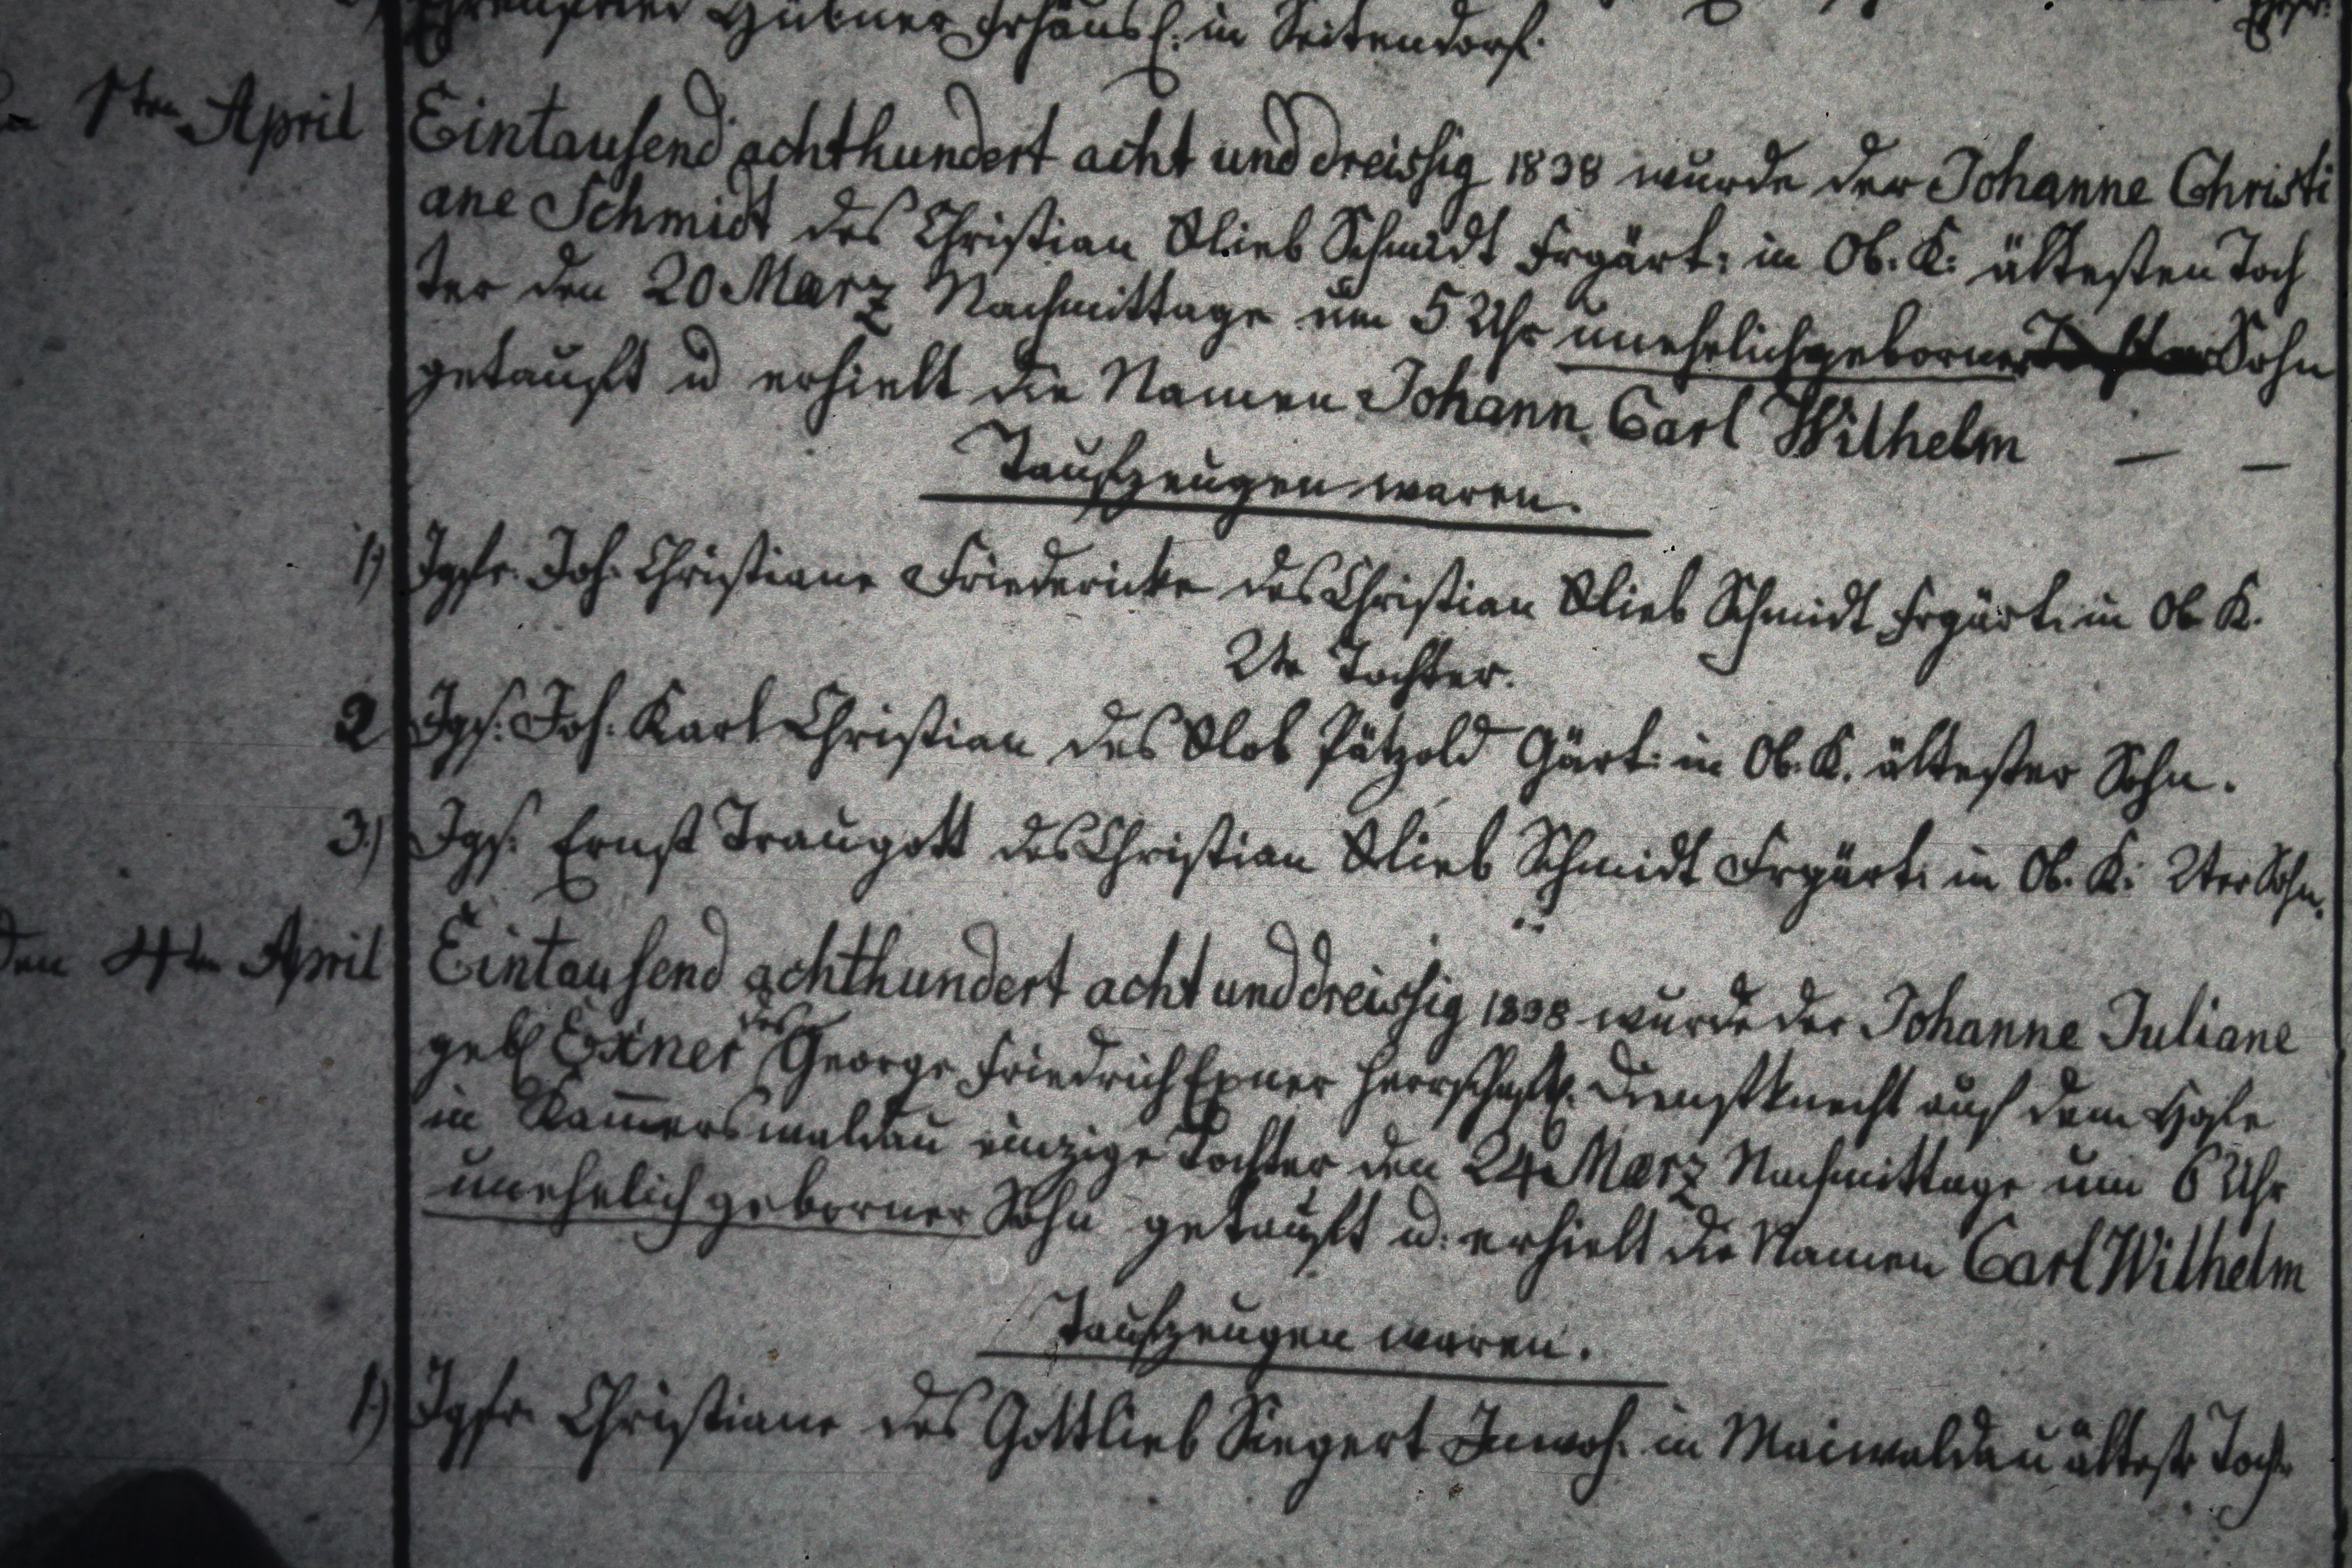 Ehrenfried Hübner Frhäusl. in Seitendorf.
1ten April Eintausend achthundert acht und dreissig 1838 wurde der Johanne Christi
ane Schmidt des Christian Glieb Schmidt Frgärt: in Ob. K: ältesten Toch
ter den 20 Marz Nachmittage um 5 Uhr unehelichgeborner Sohn
getauft u erhielt die Namen Johann Carl Wilhelm — —
Taufzeugen waren.
1) Jgfr. Joh. Christiane Friedericke des Christian Glieb Schmidt Frgärt. in Ob. K.
2te Tochter.
2 Jgs: Joh: Karl Christian des Glob Pätzold Gärt: in Ob. K. ältester Sohn.
3.) Jgs. Ernst Traugott des Christian Glieb Schmidt Frgärt: in Ob. K: 2ter Sohn.
den 4ten April Eintausend achthundert acht und dreissig 1838 wurde der Johanne Juliane
geb Exner des George Friedrich Exner herrschaftl. Dienstknecht auf dem Hofe
in Kam̄erswaldau einzige Tochter den 24 Marz Nachmittage um 6 Uhr
unehelich geborner Sohn getauft u: erhielt die Namen Carl Wilhelm
Taufzeugen waren.
1.) Jgfr. Christiane des Gottlieb Siegert Inwoh. in Maiwaldau älteste Tocht